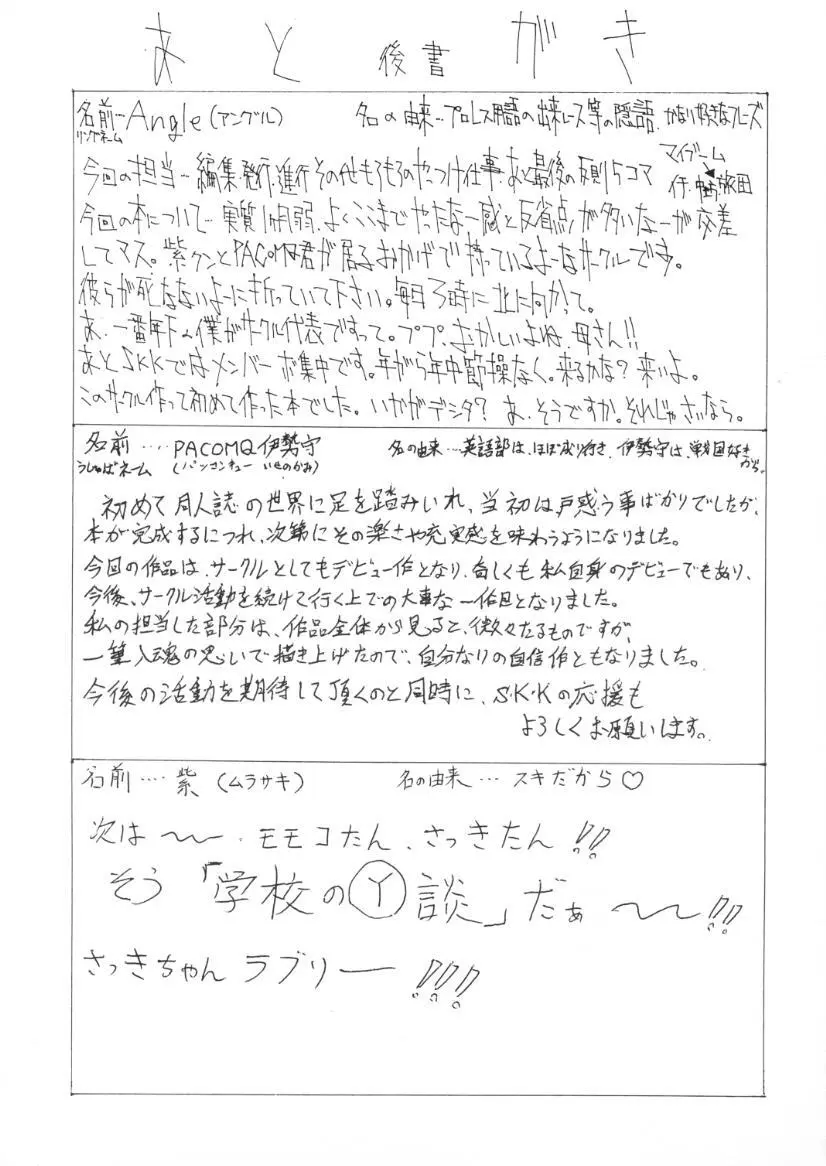 あと 後書 がき
名前…Angle(アングル) 名の由来…プロレス用語の出来レース等の隠語、かなり好きなフレーズ
リングネーム
マイブーム
今回の担当…編集、発行、進行その他もろもろのやっつけ仕事、あと最後の反則5コマ
今回の本について…実質1ヶ月弱、よくここまでやったなー感と反省点が多いなーが交差
してマス。紫クンとPACOMQ君が居るおかげで持っているよーなサークルです。
彼らが死なないよーに祈っていて下さい。毎日3時に北に向かって。
あ、一番年下の僕がサークル代表ですって。ププ、おかしいよね、母さん!!
あとSKKではメンバー募集中です。年がら年中節操なく。来るかな?来いよ。
このサークル作って初めて作った本でした。いかがデシタ?あ、そうですか。それじゃさいなら。
名前…PACOMQ伊勢守 名の由来…英語部は、ほぼ成り行き、伊勢守は、戦国好き
だから。
うしゅばネーム (パンコンキュー いせのかみ)
初めて同人誌の世界に足を踏みいれ、当初は戸惑う事ばかりでしたが、
本が完成するにつれ、次第にその楽さや充実感を味わうようになりました。
今回の作品は、サークルとしてもデビュー作となり、奇しくも私自身のデビューでもあり、
今後、サークル活動を続けて行く上での大事な一作目となりました。
私の担当した部分は、作品全体から見ると、微々たるものですが、
一筆入魂の思いで描き上げたので、自分なりの自信作ともなりました。
今後の活動を期待して頂くのと同時に、S・K・Kの応援も
よろしくお願いします。
名前…紫(ムラサキ) 名の由来…スキだから♡
次は〜〜、モモコたん、さっきたん!!
そう「学校のⓎ談」だぁ〜〜!!
さっきちゃんラブリー!!!